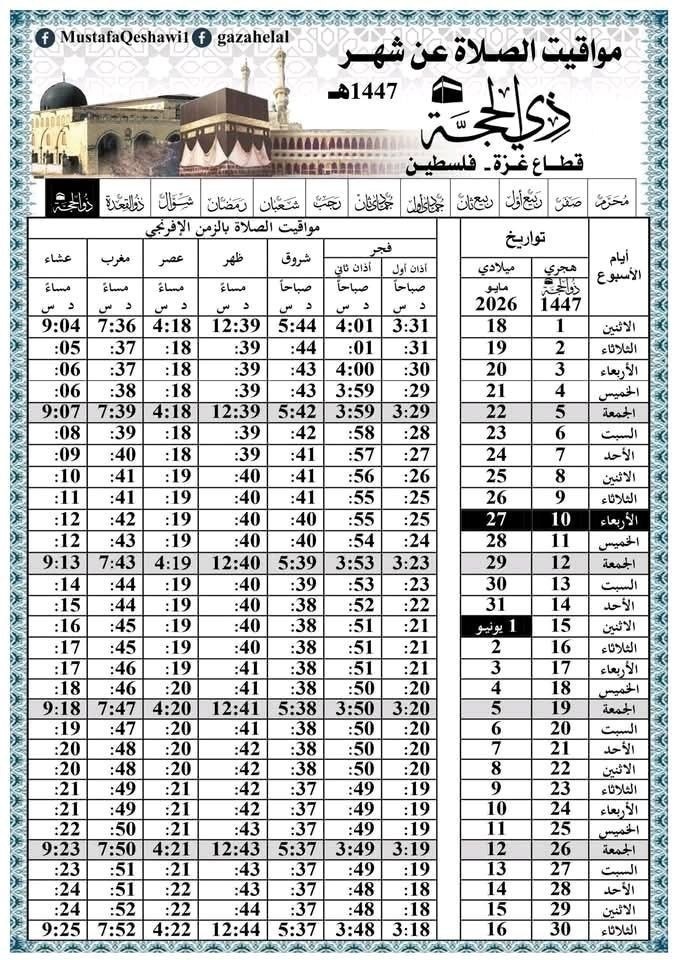 MustafaQeshawi1 gazahelal
مواقيت الصلاة عن شهر
ذي الحجة
1447هـ
قطاع غزة - فلسطين
محرم صفر ربيع أول ربيع ثان جمادى أول جمادى ثان رجب شعبان رمضان شوال ذو القعدة ذو الحجة
أيام الأسبوع تواريخ مواقيت الصلاة بالزمن الإفرنجي
هجري ميلادي فجر شروق ظهر عصر مغرب عشاء
أذان أول أذان ثاني
ذو الحجة مايو صباحاً صباحاً صباحاً مساءً مساءً مساءً مساءً
1447 2026 د س د س د س د س د س د س د س
الاثنين 1 18 3:31 4:01 5:44 12:39 4:18 7:36 9:04
الثلاثاء 2 19 :31 :01 :44 :39 :18 :37 :05
الأربعاء 3 20 :30 4:00 :43 :39 :18 :37 :06
الخميس 4 21 :29 3:59 :43 :39 :18 :38 :06
الجمعة 5 22 3:29 3:59 5:42 12:39 4:18 7:39 9:07
السبت 6 23 :28 :58 :42 :39 :18 :39 :08
الأحد 7 24 :27 :57 :41 :39 :18 :40 :09
الاثنين 8 25 :26 :56 :41 :40 :19 :41 :10
الثلاثاء 9 26 :25 :55 :41 :40 :19 :41 :11
الأربعاء 10 27 :25 :55 :40 :40 :19 :42 :12
الخميس 11 28 :24 :54 :40 :40 :19 :43 :12
الجمعة 12 29 3:23 3:53 5:39 12:40 4:19 7:43 9:13
السبت 13 30 :23 :53 :39 :40 :19 :44 :14
الأحد 14 31 :22 :52 :38 :40 :19 :44 :15
الاثنين 15 1 يونيو :21 :51 :38 :40 :19 :45 :16
الثلاثاء 16 2 :21 :51 :38 :40 :19 :45 :17
الأربعاء 17 3 :21 :51 :38 :41 :19 :46 :17
الخميس 18 4 :20 :50 :38 :41 :20 :46 :18
الجمعة 19 5 3:20 3:50 5:38 12:41 4:20 7:47 9:18
السبت 20 6 :20 :50 :38 :41 :20 :47 :19
الأحد 21 7 :20 :50 :38 :42 :20 :48 :20
الاثنين 22 8 :20 :50 :38 :42 :20 :48 :20
الثلاثاء 23 9 :19 :49 :37 :42 :21 :49 :21
الأربعاء 24 10 :19 :49 :37 :42 :21 :49 :21
الخميس 25 11 :19 :49 :37 :43 :21 :50 :22
الجمعة 26 12 3:19 3:49 5:37 12:43 4:21 7:50 9:23
السبت 27 13 :19 :49 :37 :43 :21 :51 :23
الأحد 28 14 :18 :48 :37 :43 :22 :51 :24
الاثنين 29 15 :18 :48 :37 :44 :22 :52 :24
الثلاثاء 30 16 3:18 3:48 5:37 12:44 4:22 7:52 9:25